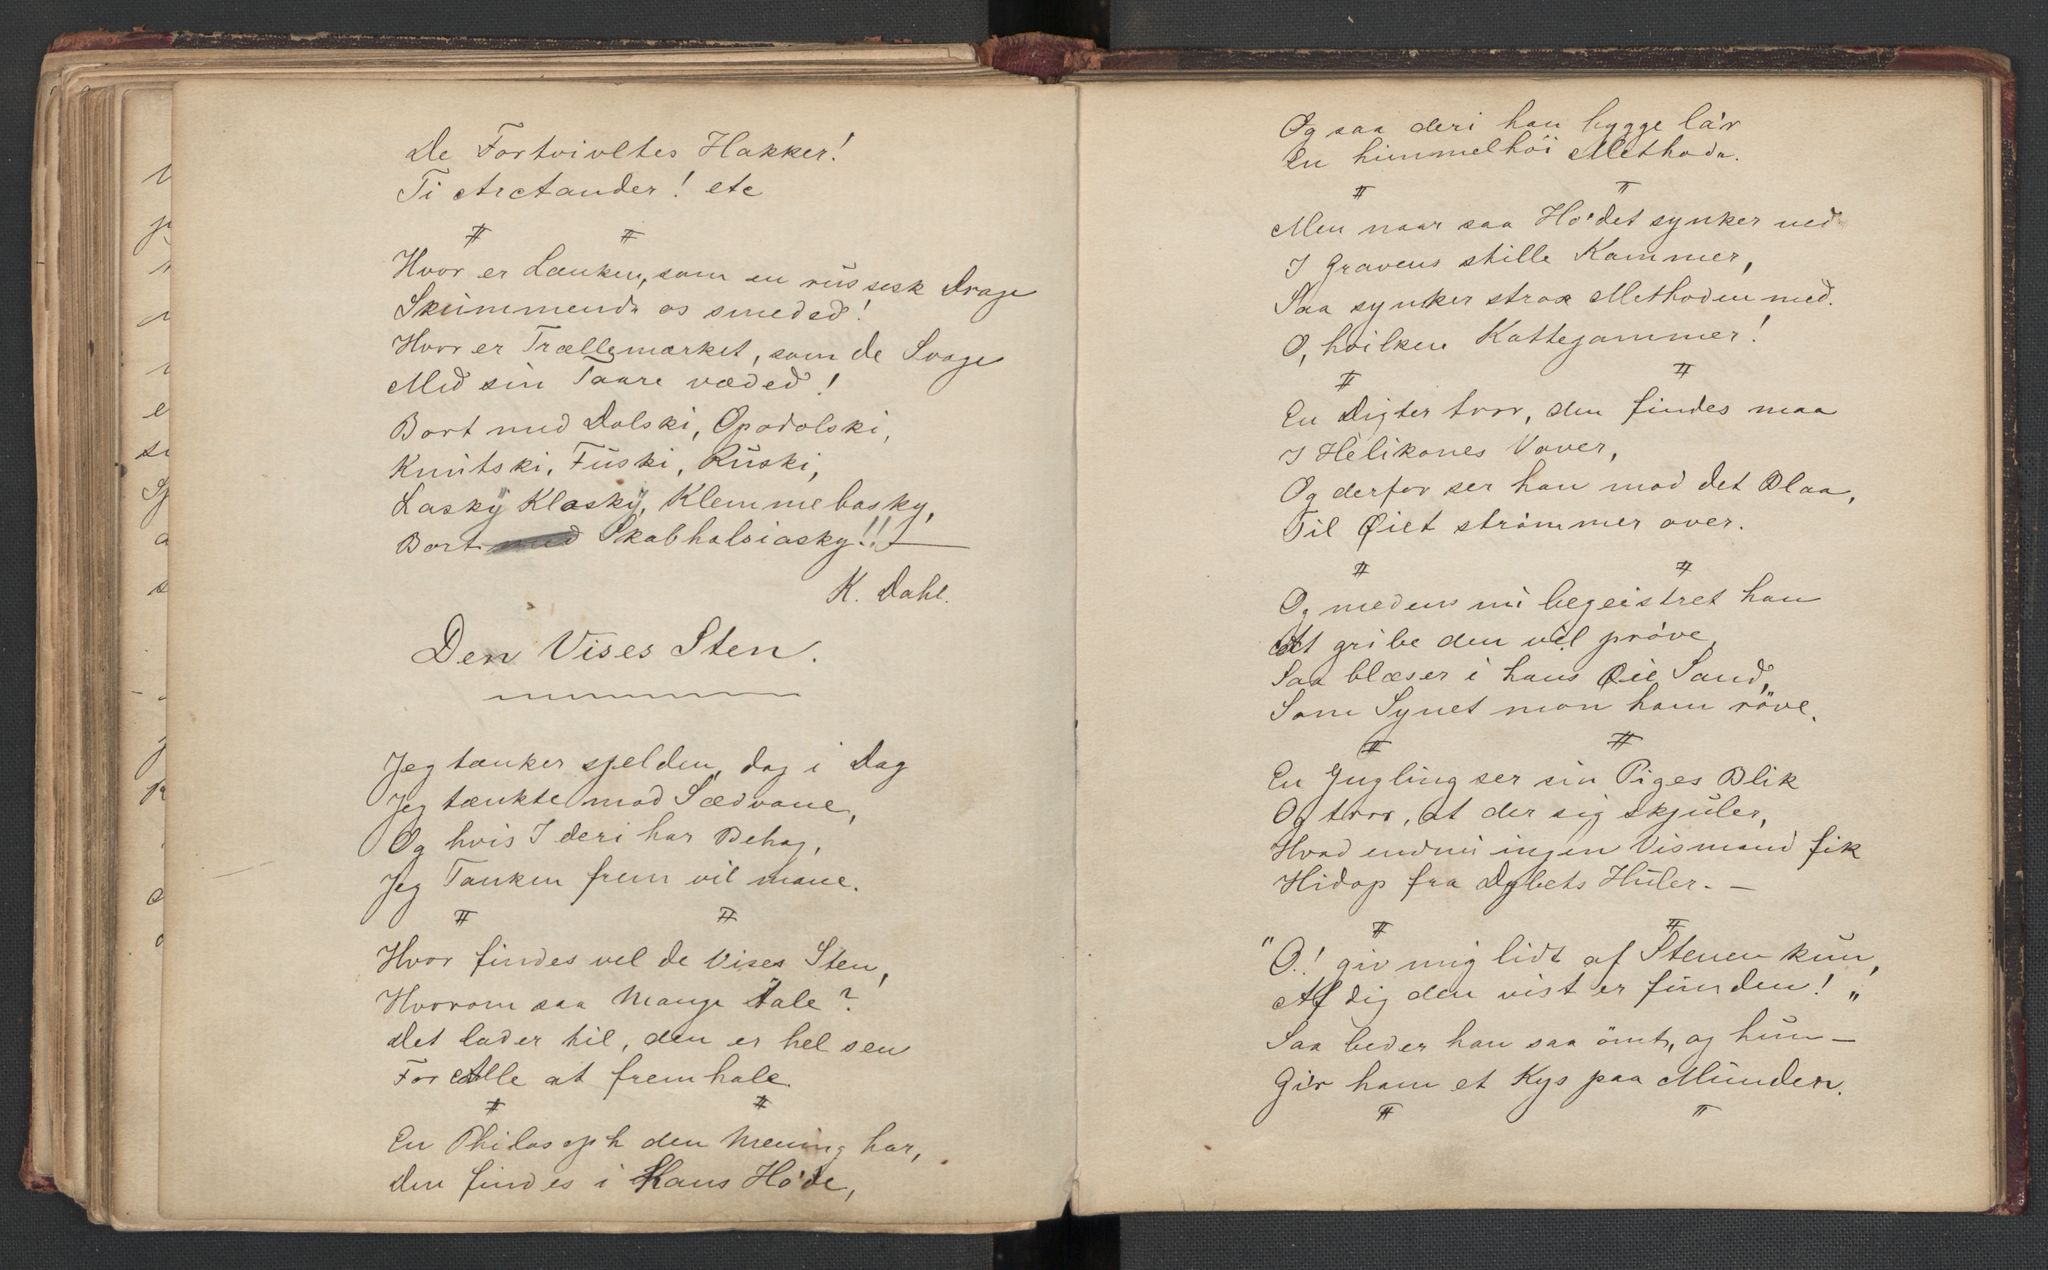 De Fortvivltes Hakker!
Ti Arctander! etc
Hvor er Lænken, som en russisk Drage
Skummende os smeded!
Hvor er Trællemærket, som de Svage
Med sin Taare væded!
Bort med Dolski, Opodolski,
Knutski, Fuski, Ruski,
Lasky Klasky, Klemmebasky,
Bort med Skabhalsiasky!! —
K. Dahl.
Den Vises Sten.
Jeg tænker sjelden, dag i Dag
Jeg tænkte mod Sædvane,
Og hvis I deri har Behag,
Jeg Tanken frem vil mane.
Hvor findes vel de Vises Sten,
Hvorom saa Mange Tale?
Det lader til, den er hel sen
For Alle at fremhale
En Philosoph den Mening har,
Den findes i Hans Ho'de,
Og saa deri han bygge la'r
En himmelhöi Methode.
Men naar saa Ho'det synker ned
I Gravens stille Kammer,
Saa synker strax Methoden med.
O, hvilken Kattejammer!
En Digter tror, den findes maa
I Helikones Vover,
Og derfor ser han mod det Blaa,
Til Øiet strömmer over.
Og medens nu begeistret han
At gribe den vil pröve,
Saa blæser i hans Øie Sand,
Som Synet mon ham röve.
En Yngling ser sin Piges Blik
Og tror, at der sig skjuler,
Hvad endnu ingen Vismand fik
Hidop fra Dybets Huler. —
"O! giv mig lidt af Stenen kun,
Af dig den vist er funden!"
Saa beder han saa ömt, og hun —
Gi'r ham et Kys paa Munden.